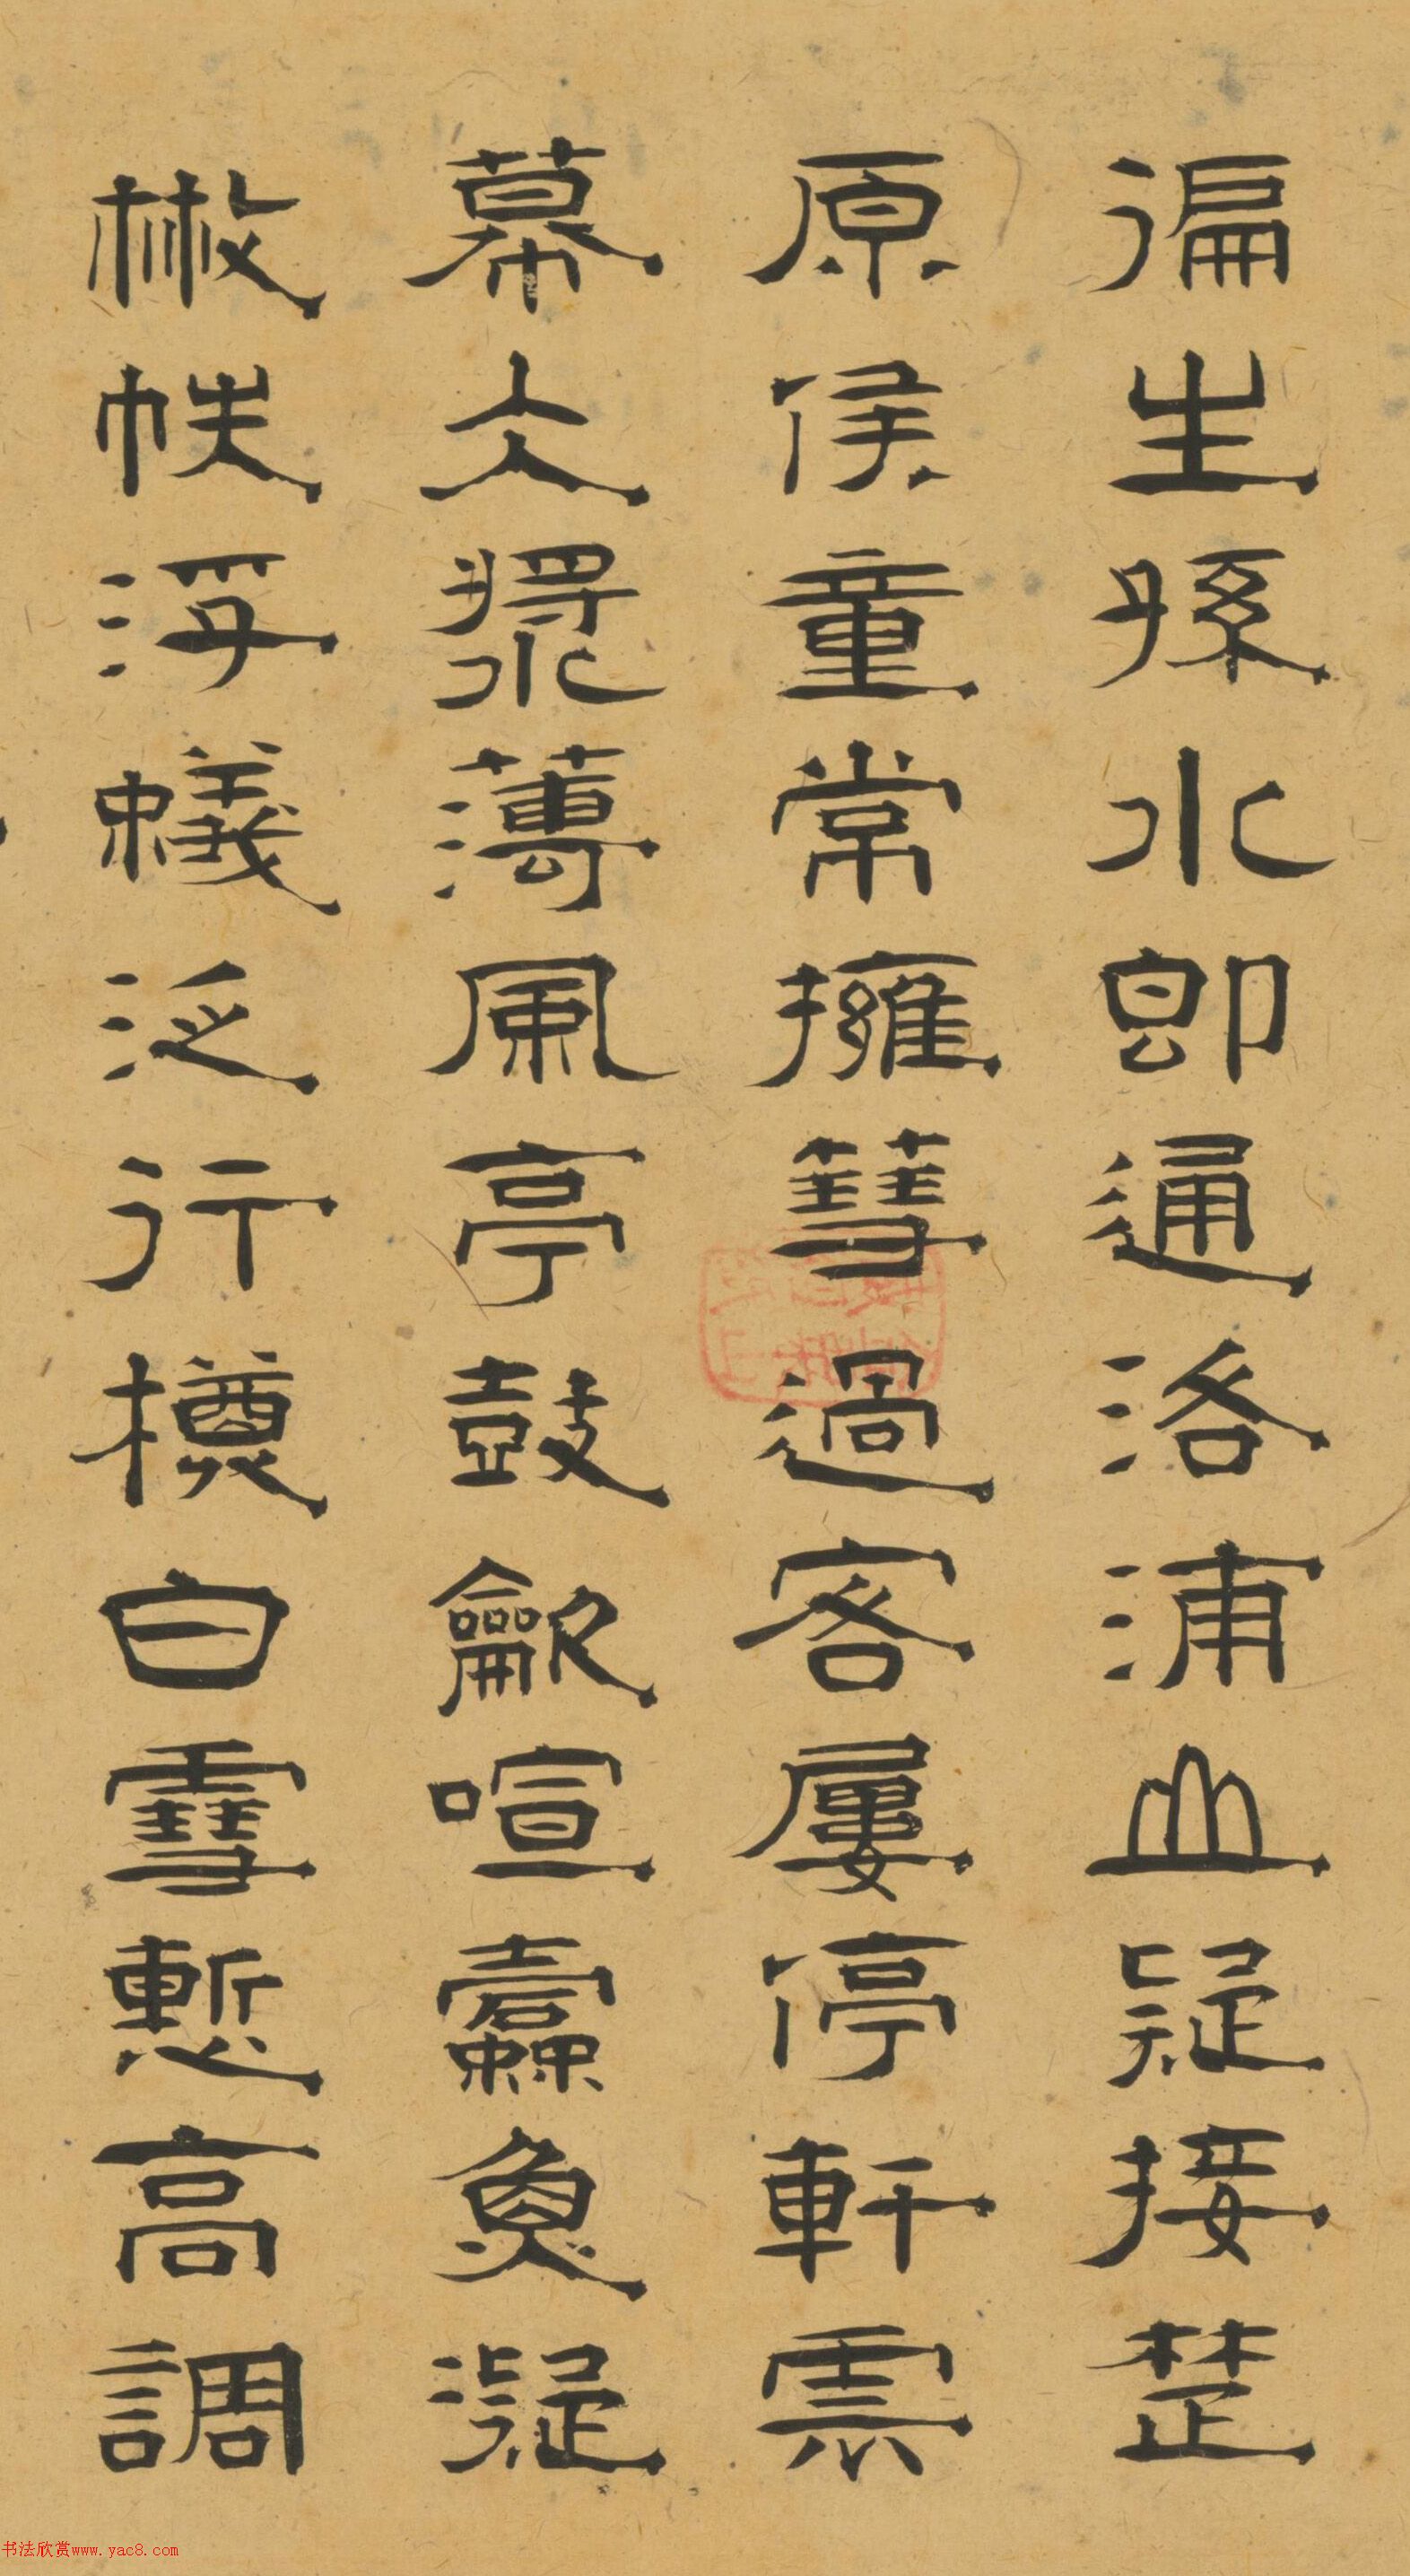 徧生孫水即通洛浦山疑接楚
原侯童常擁篲過客屢停軒雲
幕仌漿薄風亭鼓龡喧蠹魚凝
㪔帙浮蟻泛行樽白雪慙高調
书法欣赏www.yac8.com